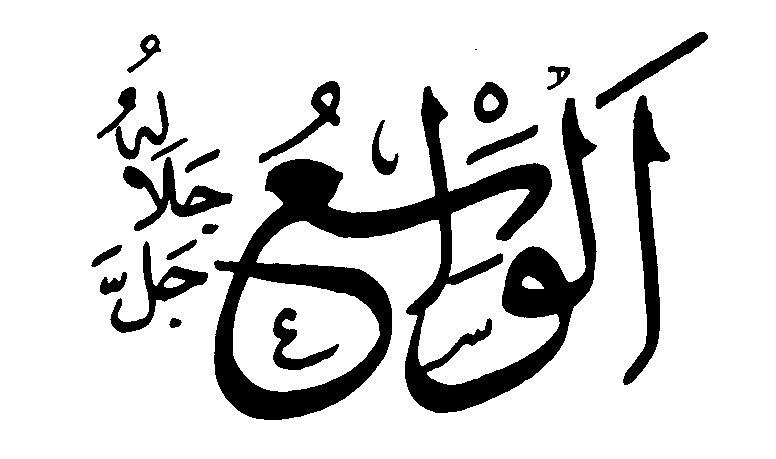 اَلْوَاسِعُ
جَلَّ جَلَالُهُ